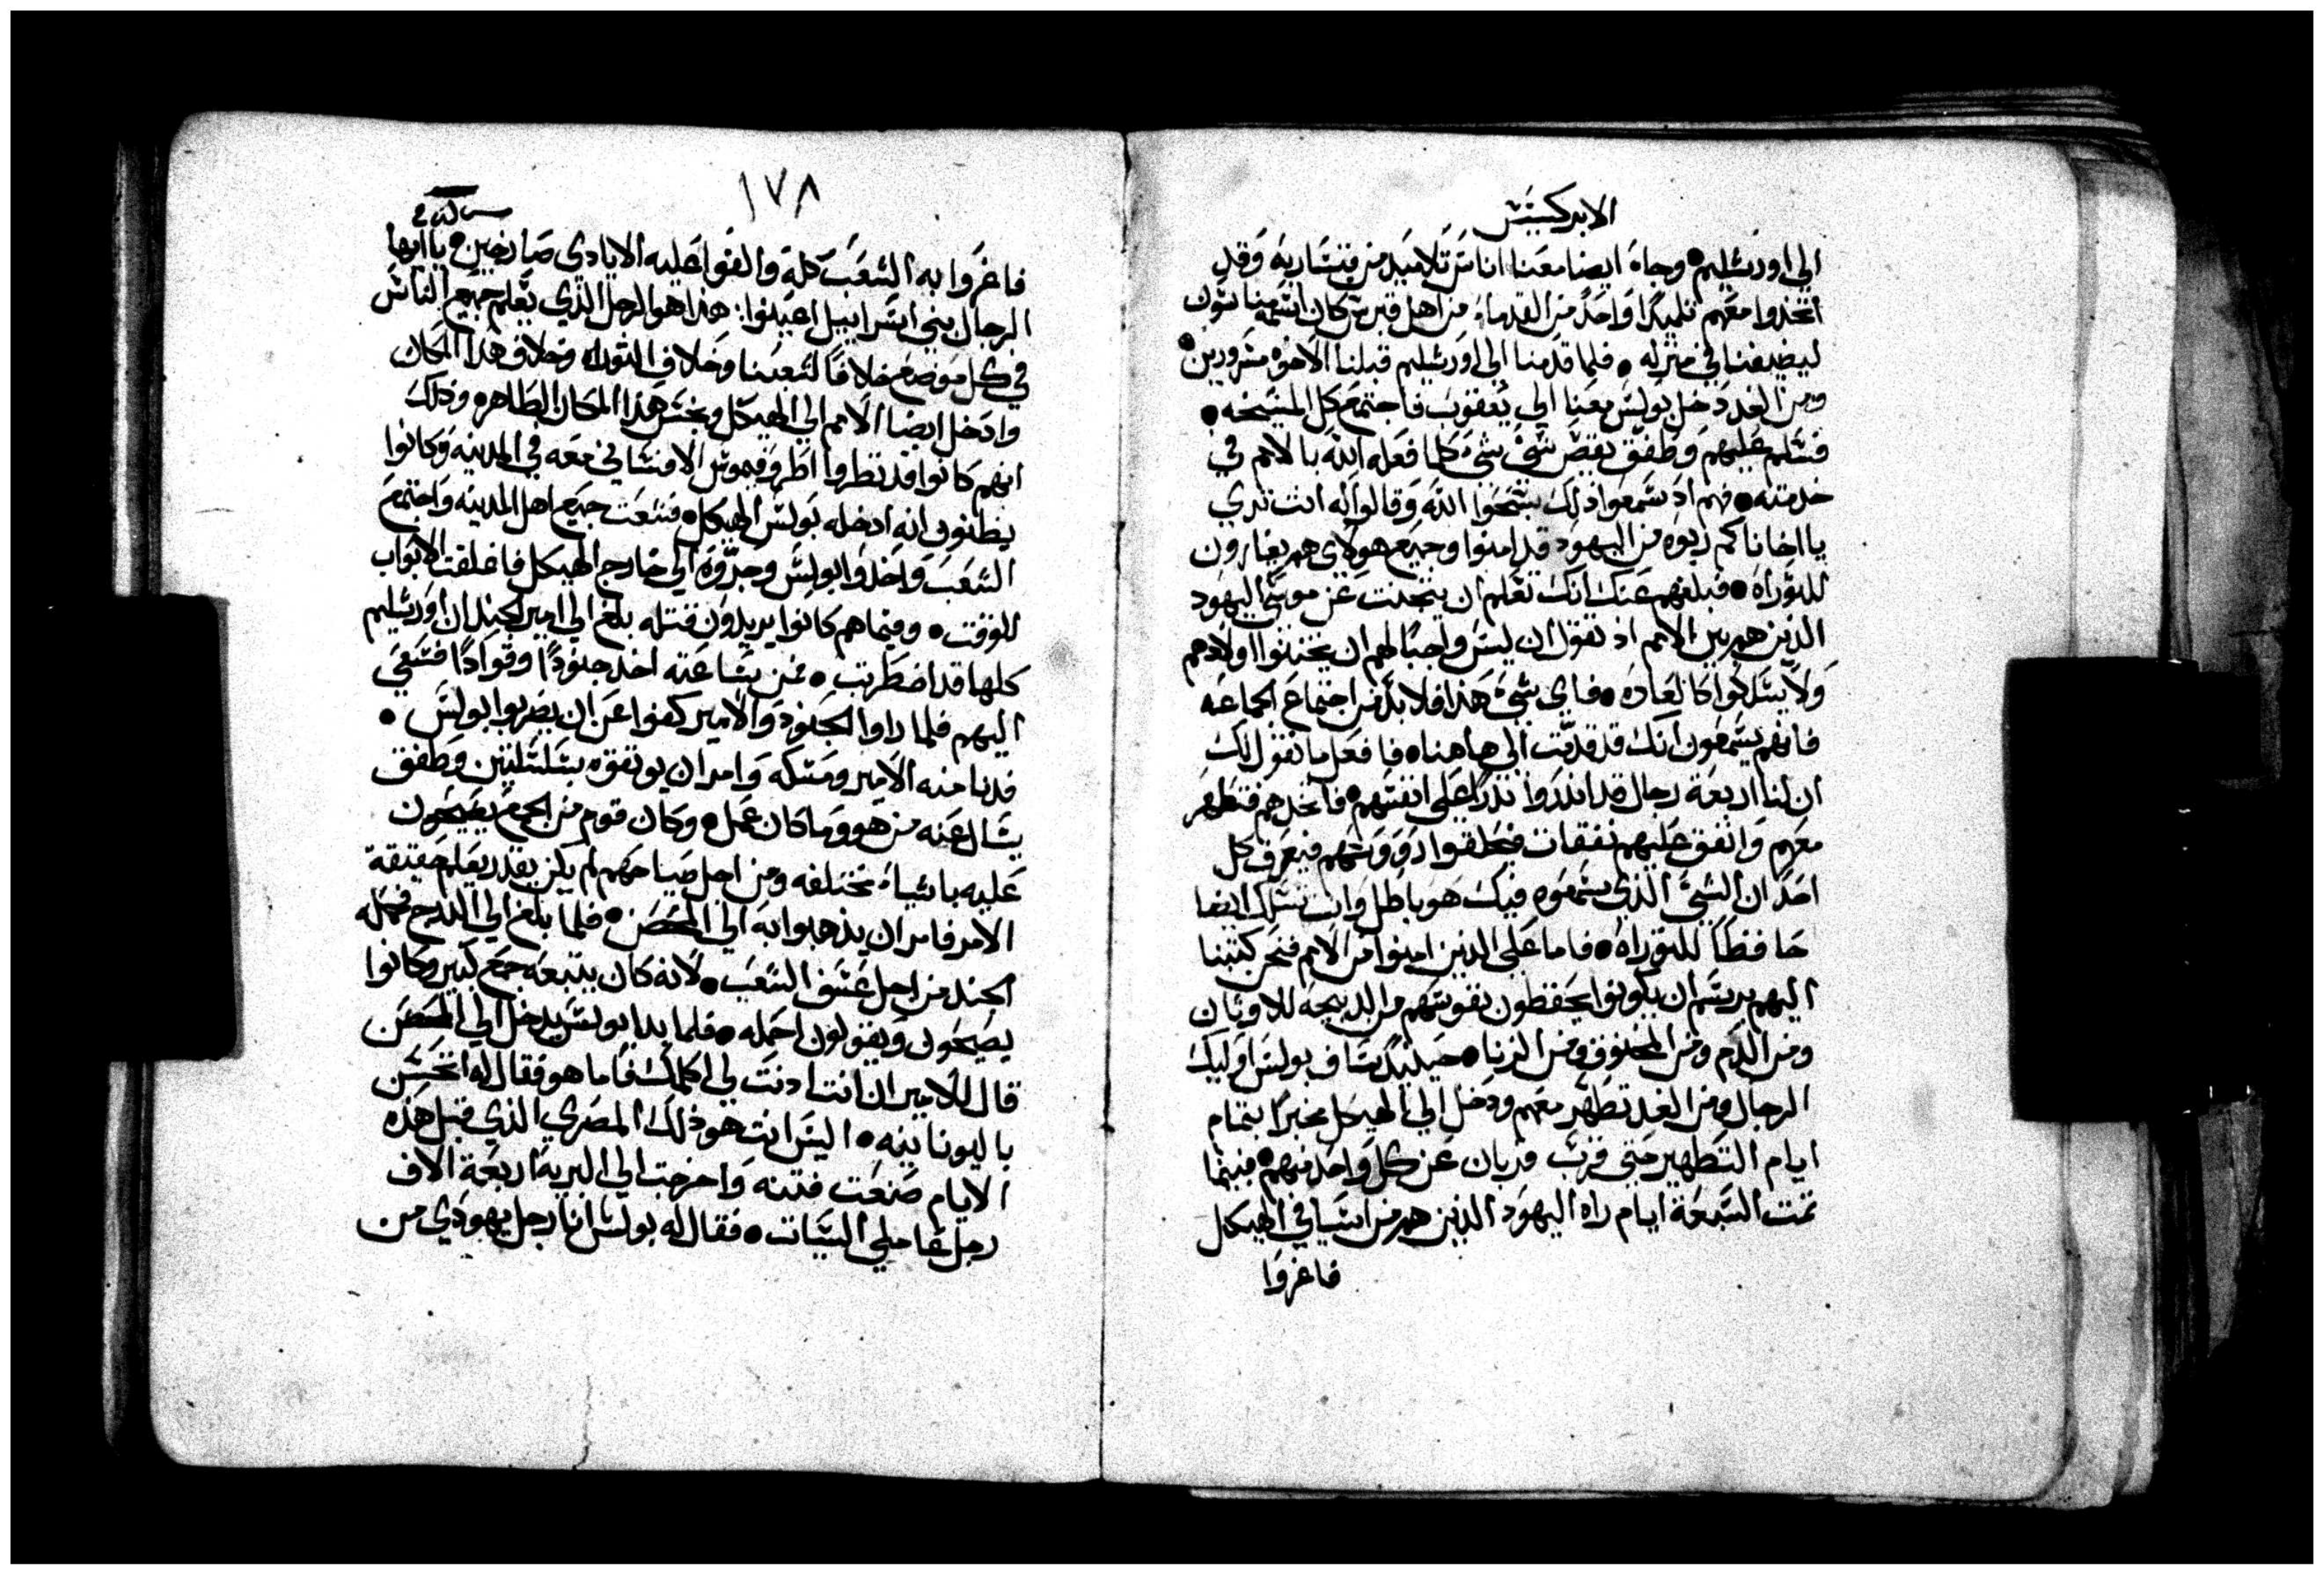 الابركسيس
الي اورشليم • وجاء ايضا معنا اناس تلاميذ من قيسارية وقد
اتخذوا معهم تلميذا واحدا من القدماء من اهل قبرس كان اسمه مناسون
ليضيفنا في منزله • فلما قدمنا الي اورشليم قبلنا الاخوه مسرورين •
ومن الغد دخل بولس معنا الي يعقوب فاجتمع كل المشيخه •
فسلم عليهم وطفق يقص شي شي كلما فعله الله بالامم في
خدمته • فهم اذ سمعوا ذلك سبحوا الله وقالوا له انت تري
يا اخانا كم ربوه من اليهود قد امنوا وجميع هولاي هم يغارون
للتوراه • فبلغهم عنك انك تعلم ان يتجنب عن موسي اليهود
الذين هم بين الامم اذ تقول ان ليس واجبا لهم ان يختنوا اولادهم
ولا يسلكوا كالعاده • فاي شي هذا فلا بد من اجتماع الجماعه
فانهم يسمعون انك قد قدمت الي هاهنا • فافعل ما نقول لك
ان لنا اربعة رجال قد انذروا نذرا علي انفسهم • فاتخذهم فتطهر
معهم وانفق عليهم نفقات فيحلقوا رووسهم فيعرف كل
احد ان الشي الذي سمعوه فيك هو باطل وانت تسلك ايضا
حافظا للتوراه • فاما علي الذين امنوا من الامم فنحن كتبنا
اليهم برسم ان يكونوا يحفظون نفوسهم من الذبيحة للاوثان
ومن الدم ومن المخنوق ومن الزنا • حينيذ ساف بولس اوليك
الرجال ومن الغد تطهر معهم ودخل الي الهيكل مخبرا بتمام
ايام التطهير حتي قرب قربان عن كل واحد منهم • فبينما
تمت السبعة ايام راه اليهود الذين هم من اسيا في الهيكل
فاغروا
١٧٨
فاغروا به الشعب كله والقوا عليه الايادي صارخين • يا ايها
الرجال بني اسراييل اعينوا : هذا هو الرجل الذي يعلم جميع الناس
في كل موضع خلافا لشعبنا وخلاف التوراه وخلاف هذا المكان
وادخل ايضا الامم الي الهيكل ونجس هذا المكان الطاهره وذلك
انهم كانوا قد نظروا اطروفيموس الافساني معه في المدينه وكانوا
يظنون انه ادخله بولس الهيكل • فشعت جميع اهل المدينه واجتمع
الشعب واخذوا بولس وجروه الي خارج الهيكل فاغلقت الابواب
للوقت • وفيما هم كانوا يريدون قتله بلغ الي امير الجند ان اورشليم
كلها قد اضطربت • فمن ساعته اخذ جنودا وقوادا فسعي
اليهم فلما راوا الجنود والامير كفوا عن ان يضربوا بولس •
فدنا منه الامير ومسكه وامر ان يوثقوه بسلسلتين وطفق
يسال عنه من هو وما كان عمل • وكان قوم من الجمع يصيحون
عليه باشياء مختلفه ومن اجل صياحهم لم يكن يقدر يعلم حقيقة
الامر فامر ان يذهبوا به الي المحصن • فلما بلغ الي الدرج فحمله
الجند من اجل عسف الشعب • لانه كان يتبعه جمع كبير وكانوا
يصيحون ويقولون احمله • فلما بدا بولس يدخل الي المحصن
قال للامير ان انت ادنت لي اكلمك فاما هو فقال له اتحسن
باليونانيه • اليس انت هو ذلك المصري الذي قبل هذه
الايام صنعت فتنه واخرجت الي البرية اربعة الاف
رجل عاملي السيات • فقال له بولس انا رجل يهودي من